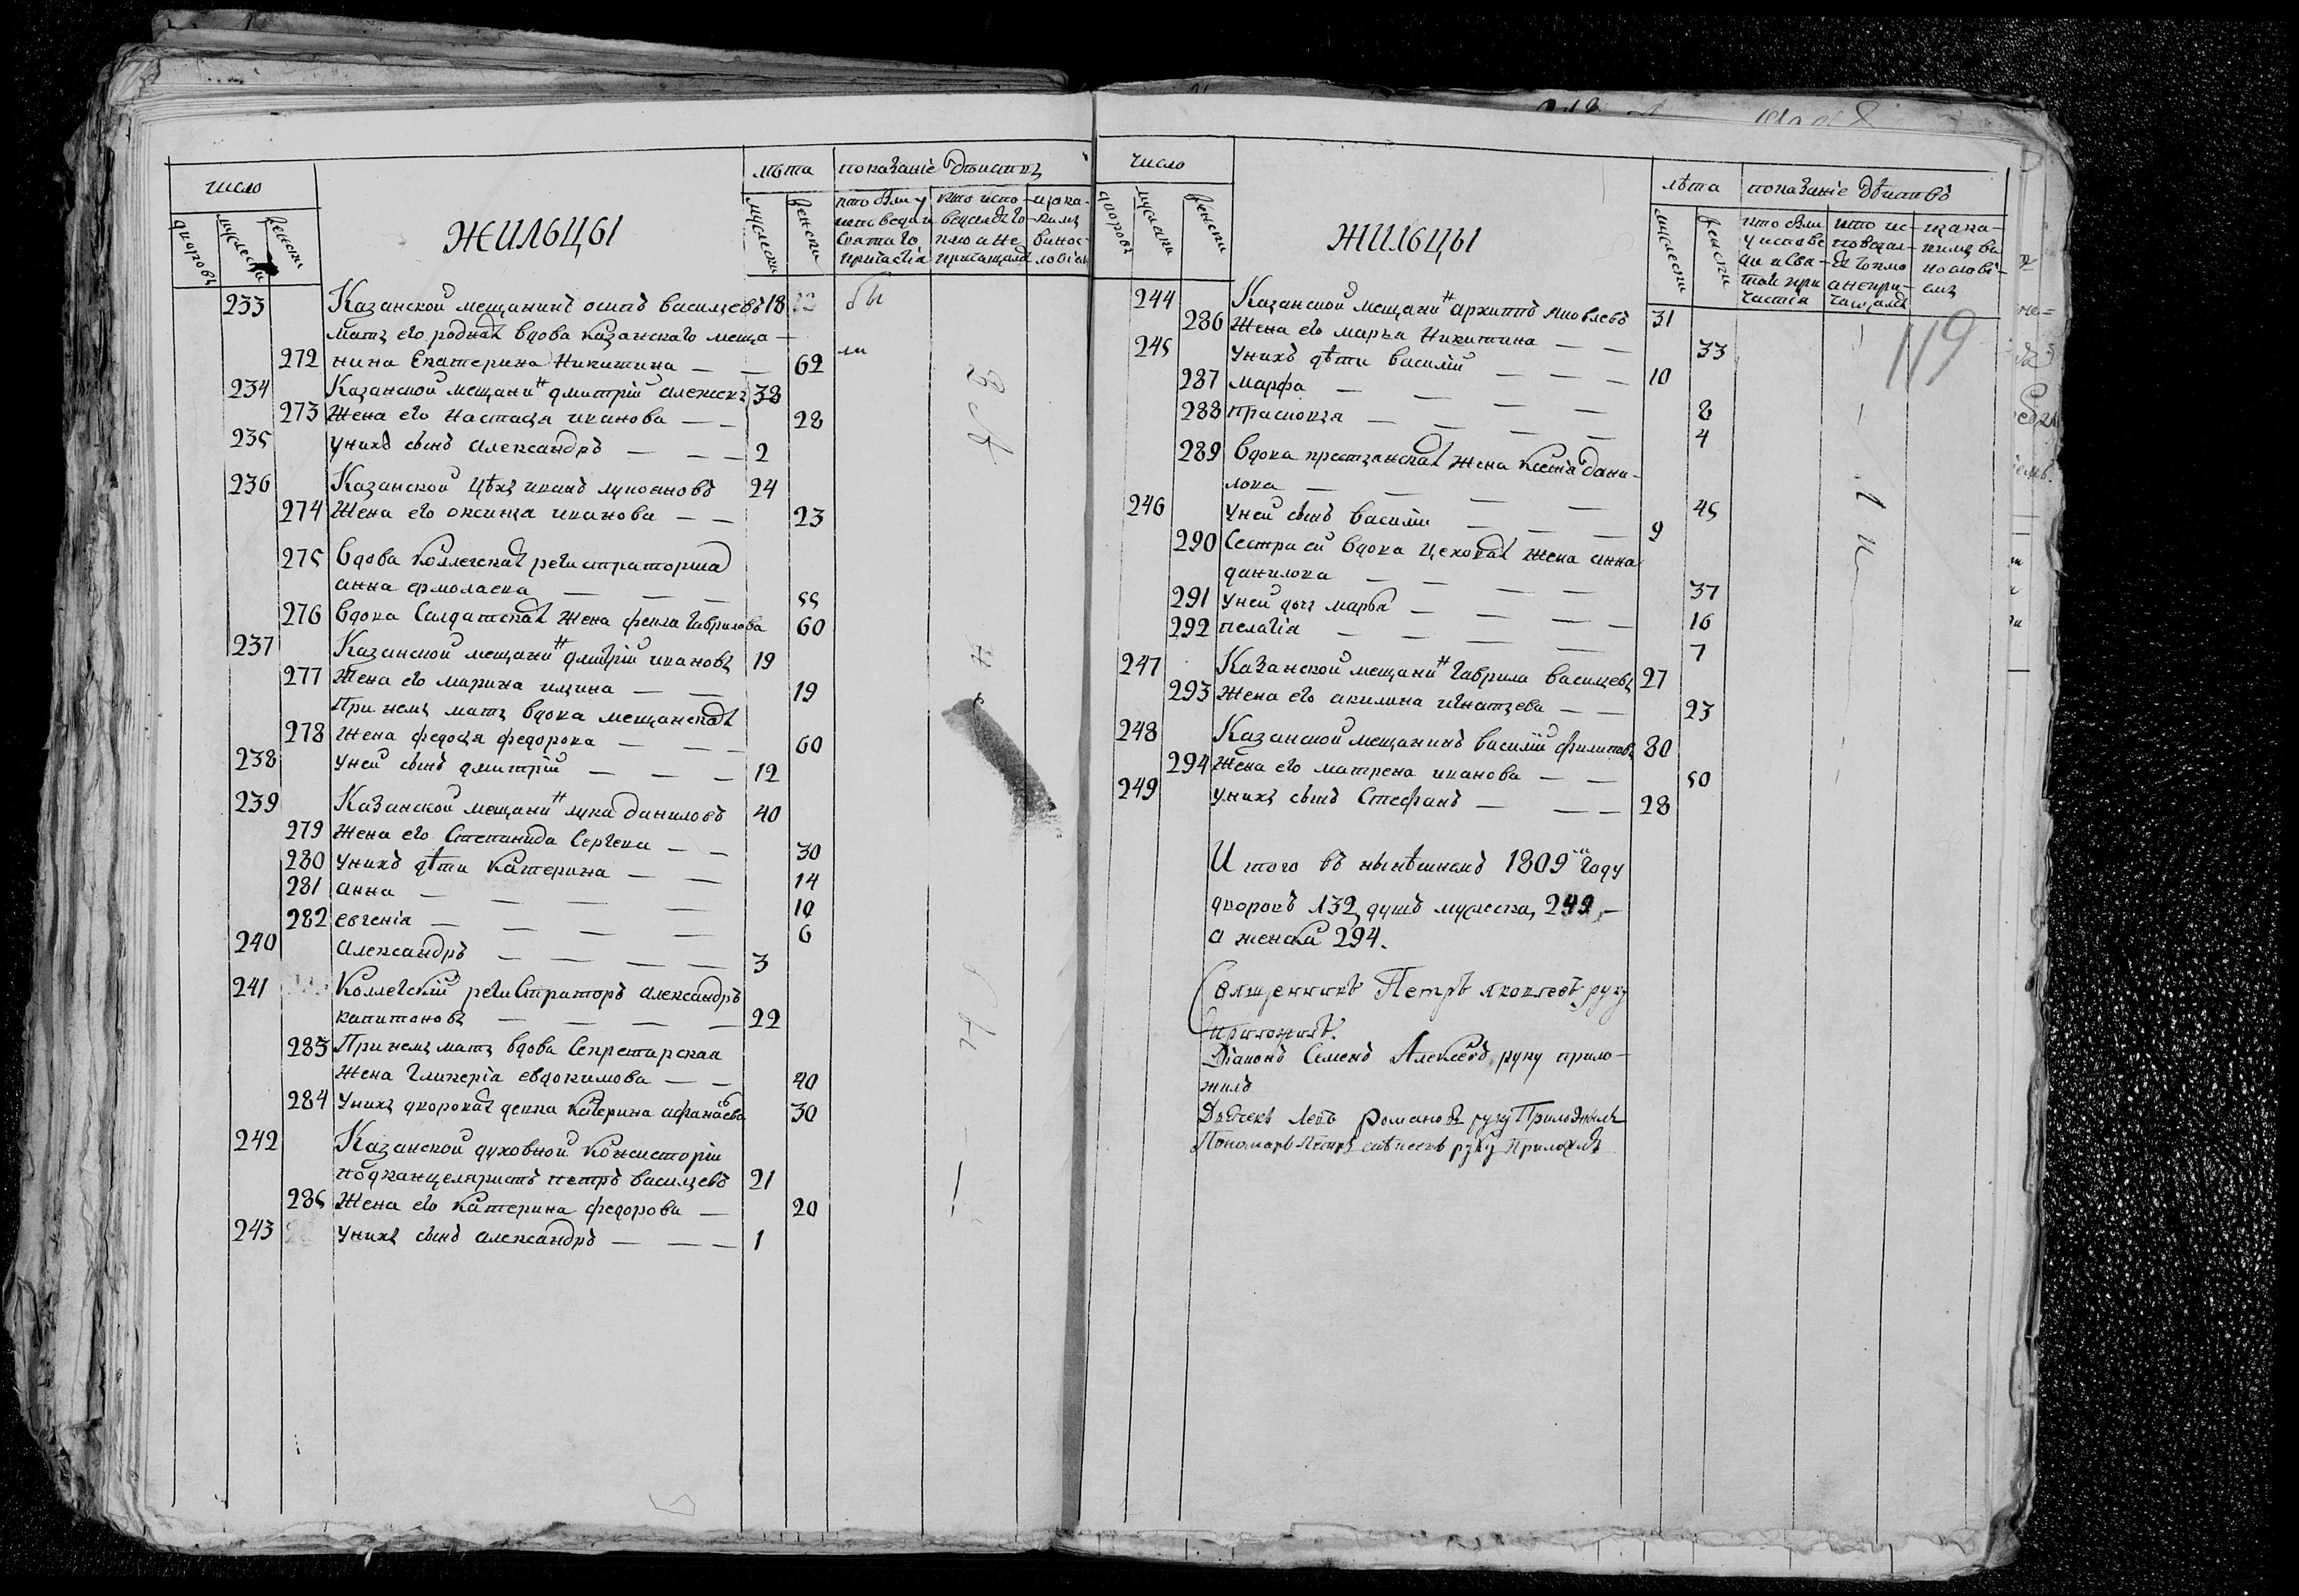 число
ЖИЛЬЦЫ
лѣта
показаніе дѣиствъ
дворовъ
мужеска
женска
мужеска
женска
кто былъ у исповеди и святаго причастія
кто исповедался токмо а не причащался
и за какимъ винословіемъ
233 Казанской мещанинъ осипъ васильевъ 18 бы
Мать его родная вдова казанскаго меща-
272 нина Екатерина Никитина — — 62 ли
234 Казанской мещанинъ дмитрій алексеевъ 38
273 Жена его настасья иванова — — 28
235 у нихъ сынъ александръ — — — 2
236 Казанской цѣхъ иванъ лукояновъ 24
274 Жена его оксинья иванова — — 23
275 Вдова Коллежская регистраторша
анна ермолаева — — — 55
276 Вдова Салдатская жена фекла гаврилова 60
237 Казанской мещанинъ дмитрій ивановъ 19
277 Жена его марина ильина — — 19
При немъ мать вдова мещанская
278 Жена федосья федорова — — — 60
238 у ней сынъ дмитрій — — — 12
239 Казанской мещанинъ лука даниловъ 40
279 Жена его Степанида Сергеева — — 30
280 у нихъ дѣти катерина — — 14
281 анна — — — — 10
282 евгенія — — — — 6
240 александръ — — — — 3
241 Коллегскій регистраторъ александръ
капитоновъ — — — — 22
283 При немъ мать вдова Секретарская
жена гликерія евдокимова — — 40
284 у нихъ дворовая девка катерина афанасева 30
242 Казанской духовной консисторіи
подканцеляристъ петръ васильевъ 21
285 Жена его катерина федорова — 20
243 у нихъ сынъ александръ — — — 1
119
число
ЖИЛЬЦЫ
лѣта
показаніе дѣиствъ
дворовъ
мужеска
женска
мужеска
женска
кто былъ у исповеди и святаго причастія
кто исповедался токмо а не причащался
и за какимъ винословіемъ
244 Казанской мещанинъ архиппъ яковлевъ 31
286 Жена его марья Никитина — — 33
245 у нихъ дѣти василій — — — 10
287 марфа — — — — 8
288 прасковья — — — — 4
289 Вдова крестьянская жена ксенія дани-
лова — — — — 45
246 у ней сынъ василій — — — 9
290 Сестра ей вдова цеховая жена анна
данилова — — — — 37
291 у ней дочь марья — — — — 16
292 пелагія — — — — 7
247 Казанской мещанинъ гаврила васильевъ 27
293 Жена его акилина игнатьева — — 23
248 Казанской мещанинъ василій филиповъ 80
294 Жена его матрена иванова — — 50
249 у нихъ сынъ Стефанъ — — — 28
Итого въ нынѣшнемъ 1809м году
дворовъ 132, душъ мужеска, 249,—
а женска 294.
Священникъ Петръ яковлевъ руку
приложилъ.
Діаконъ Семенъ Алексѣевъ руку прило-
жилъ
Дьячекъ Левъ Романовъ руку Приложилъ
Пономарь Петръ руку Приложилъ